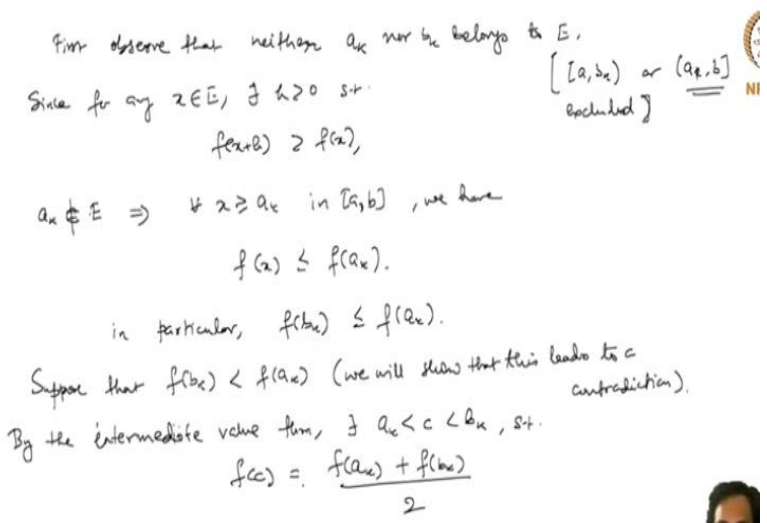 First observe that neither a_k nor b_k belongs to E.
[ [a, b_k) or (a_k, b] excluded ]
Since for any x ∈ E, ∃ h > 0 s.t.
f(x+h) > f(x),
a_k ∉ E ⇒ ∀ x ≥ a_k in [a, b], we have
f(x) ≤ f(a_k).
in particular, f(b_k) ≤ f(a_k).
Suppose that f(b_k) < f(a_k) (we will show that this leads to a contradiction).
By the intermediate value thm, ∃ a_k < c < b_k, s.t.
f(c) = (f(a_k) + f(b_k)) / 2